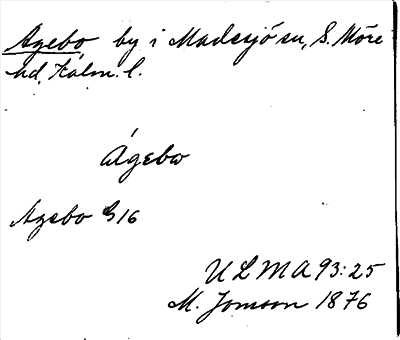 Agebo by i Madesjö sn, S. Möre
hd, Kalm. l.
Ágebω
Agebo G16
ULMA 93:25
M. Jonsson 1876